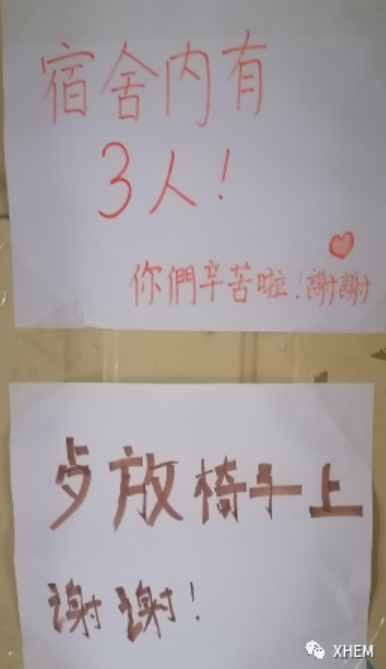 宿舍内有
3人!
你們辛苦啦!謝謝
歺放椅子上
谢谢!
XHEM